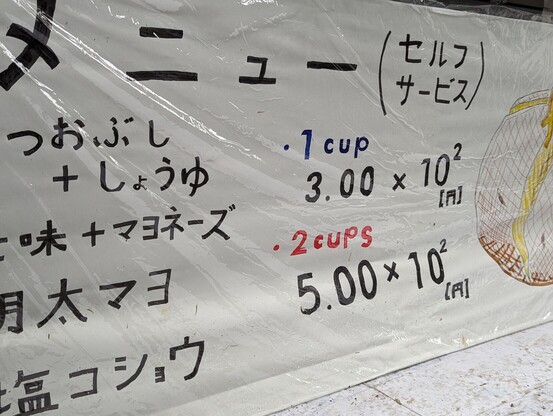 メニュー
(セルフサービス)
つおぶし
+しょうゆ
味+マヨネーズ
明太マヨ
塩コショウ
・1 cup
3.00 × 10²
[円]
・2 cups
5.00 × 10²
[円]